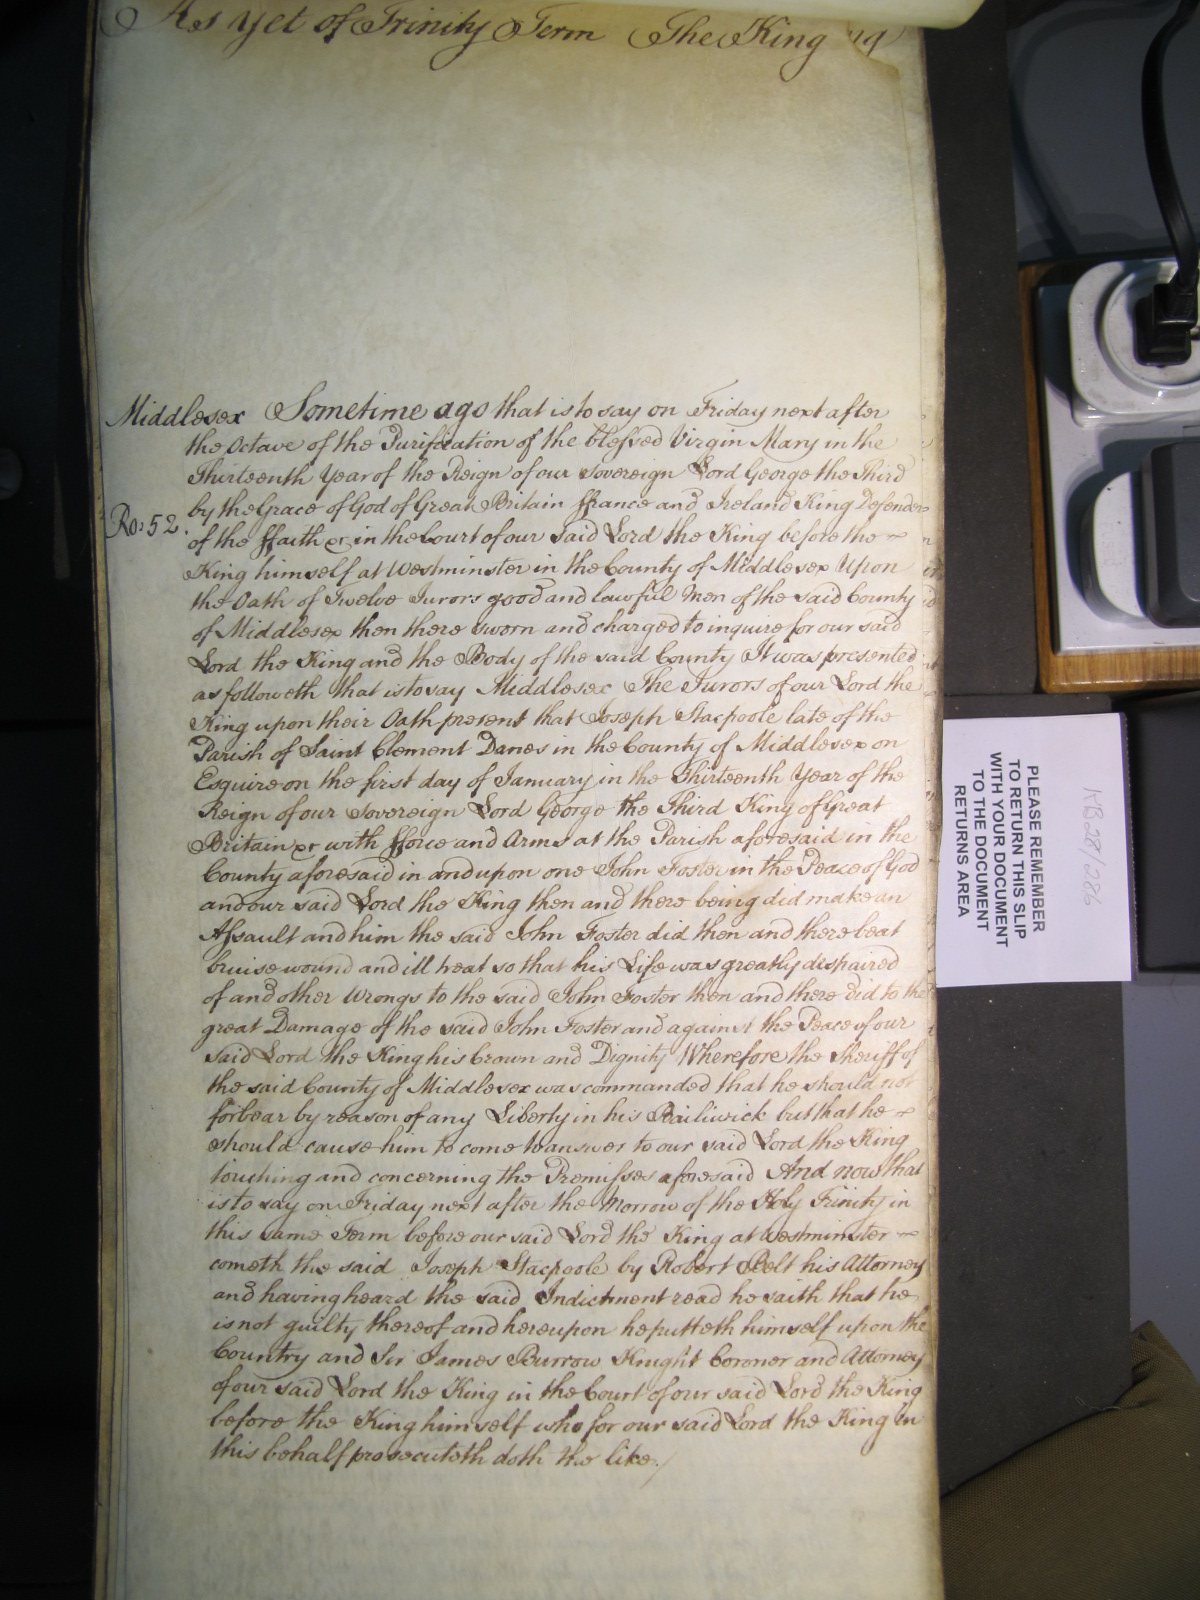 As yet of Trinity Term The King ag
Middlesex Sometime ago that is to say on Friday next after
the Octave of the Purification of the blessed Virgin Mary in the
Thirteenth Year of the Reign of our Sovereign Lord George the Third
by the Grace of God of Great Britain ffrance and Ireland King Defender
Ro: 52.
of the ffaith &c in the Court of our said Lord the King before the
King himself at Westminster in the County of Middlesex Upon
the Oath of Twelve Jurors good and lawful Men of the said County
of Middlesex then there sworn and charged to inquire for our said
Lord the King and the Body of the said County It was presented
as followeth that is to say Middlesex The Jurors of our Lord the
King upon their Oath present that Joseph Stacpoole late of the
Parish of Saint Clement Danes in the County of Middlesex on
Esquire on the first day of January in the Thirteenth Year of the
Reign of our Sovereign Lord George the Third King of Great
Britain &c with fforce and Arms at the Parish aforesaid in the
County aforesaid in and upon one John Foster in the Peace of God
and our said Lord the King then and there being did make an
Assault and him the said John Foster did then and there beat
bruise wound and ill treat so that his Life was greatly dispaired
of and other Wrongs to the said John Foster then and there did to the
great Damage of the said John Foster and against the Peace of our
said Lord the King his Crown and Dignity Wherefore the Sheriff of
the said County of Middlesex was commanded that he should not
forbear by reason of any Liberty in his Bailiwick but that he
should cause him to come to answer to our said Lord the King
touching and concerning the Premisses aforesaid And now that
is to say on Friday next after the Morrow of the Holy Trinity in
this same Term before our said Lord the King at Westminster
cometh the said Joseph Stacpoole by Robert Pelt his Attorney
and having heard the said Indictment read he saith that he
is not guilty thereof and hereupon he putteth himself upon the
Country and Sir James Burrow Knight Coroner and Attorney
of our said Lord the King in the Court of our said Lord the King
before the King himself who for our said Lord the King in
this behalf prosecuteth doth the like
KB28/286
PLEASE REMEMBER
TO RETURN THIS SLIP
WITH YOUR DOCUMENT
TO THE DOCUMENT
RETURNS AREA